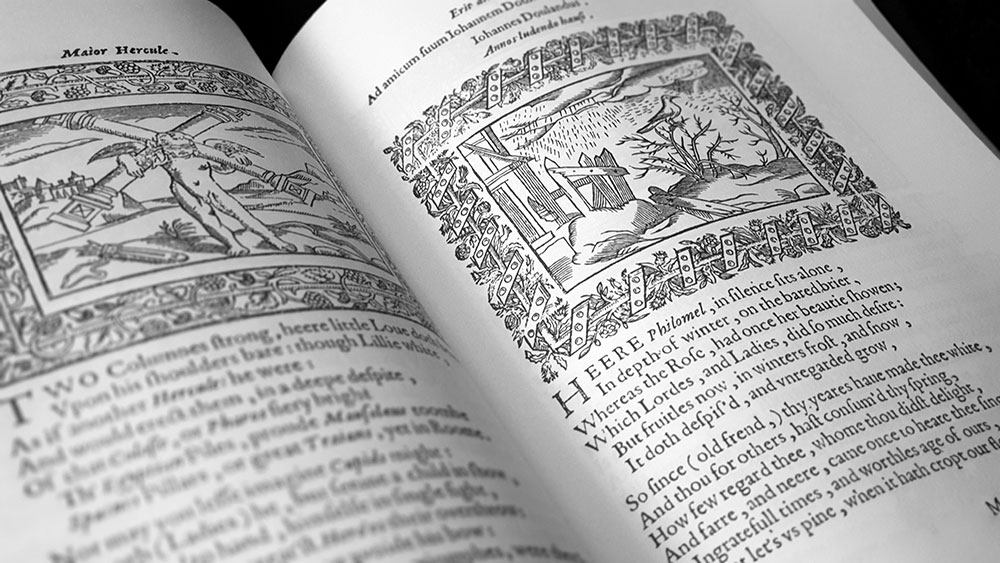 Maior Hercule.
TWO Columnes ſtrong, heere little Loue doth
Vpon his ſhoulders bare: though Lillie white,
As if another Hercules he were:
And would erect them, in a deepe deſpite,
Of that Coloſſe, or Pharus fiery bright
The Egyptian Piles, proude Mauſoleus toombe
Pillars, or great Traians, yet in Roome.
Nor may you leſſe imagine Cupids might:
(Ladies) he, but ſeeme a child in ſhow,
hand, in ſingle fight,
his bow:
Ad amicum ſuum Iohannem Dou
Iohannes Doulandus
Annos ludendo hauſi.
HEERE Philomel, in ſilence ſits alone,
In depth of winter, on the bared brier,
Whereas the Roſe, had once her beautie ſhowen;
Which Lordes, and Ladies, did ſo much deſire:
But fruitles now, in winters froſt, and ſnow,
It doth deſpiſ'd, and vnregarded grow,
So ſince (old frend,) thy yeares haue made thee white,
And thou for others, haſt conſum'd thy ſpring,
How few regard thee, whome thou didſt delight,
And farre, and neere, came once to heare thee ſing
Ingratefull times, and worthles age of ours,
let's vs pine, when it hath cropt our